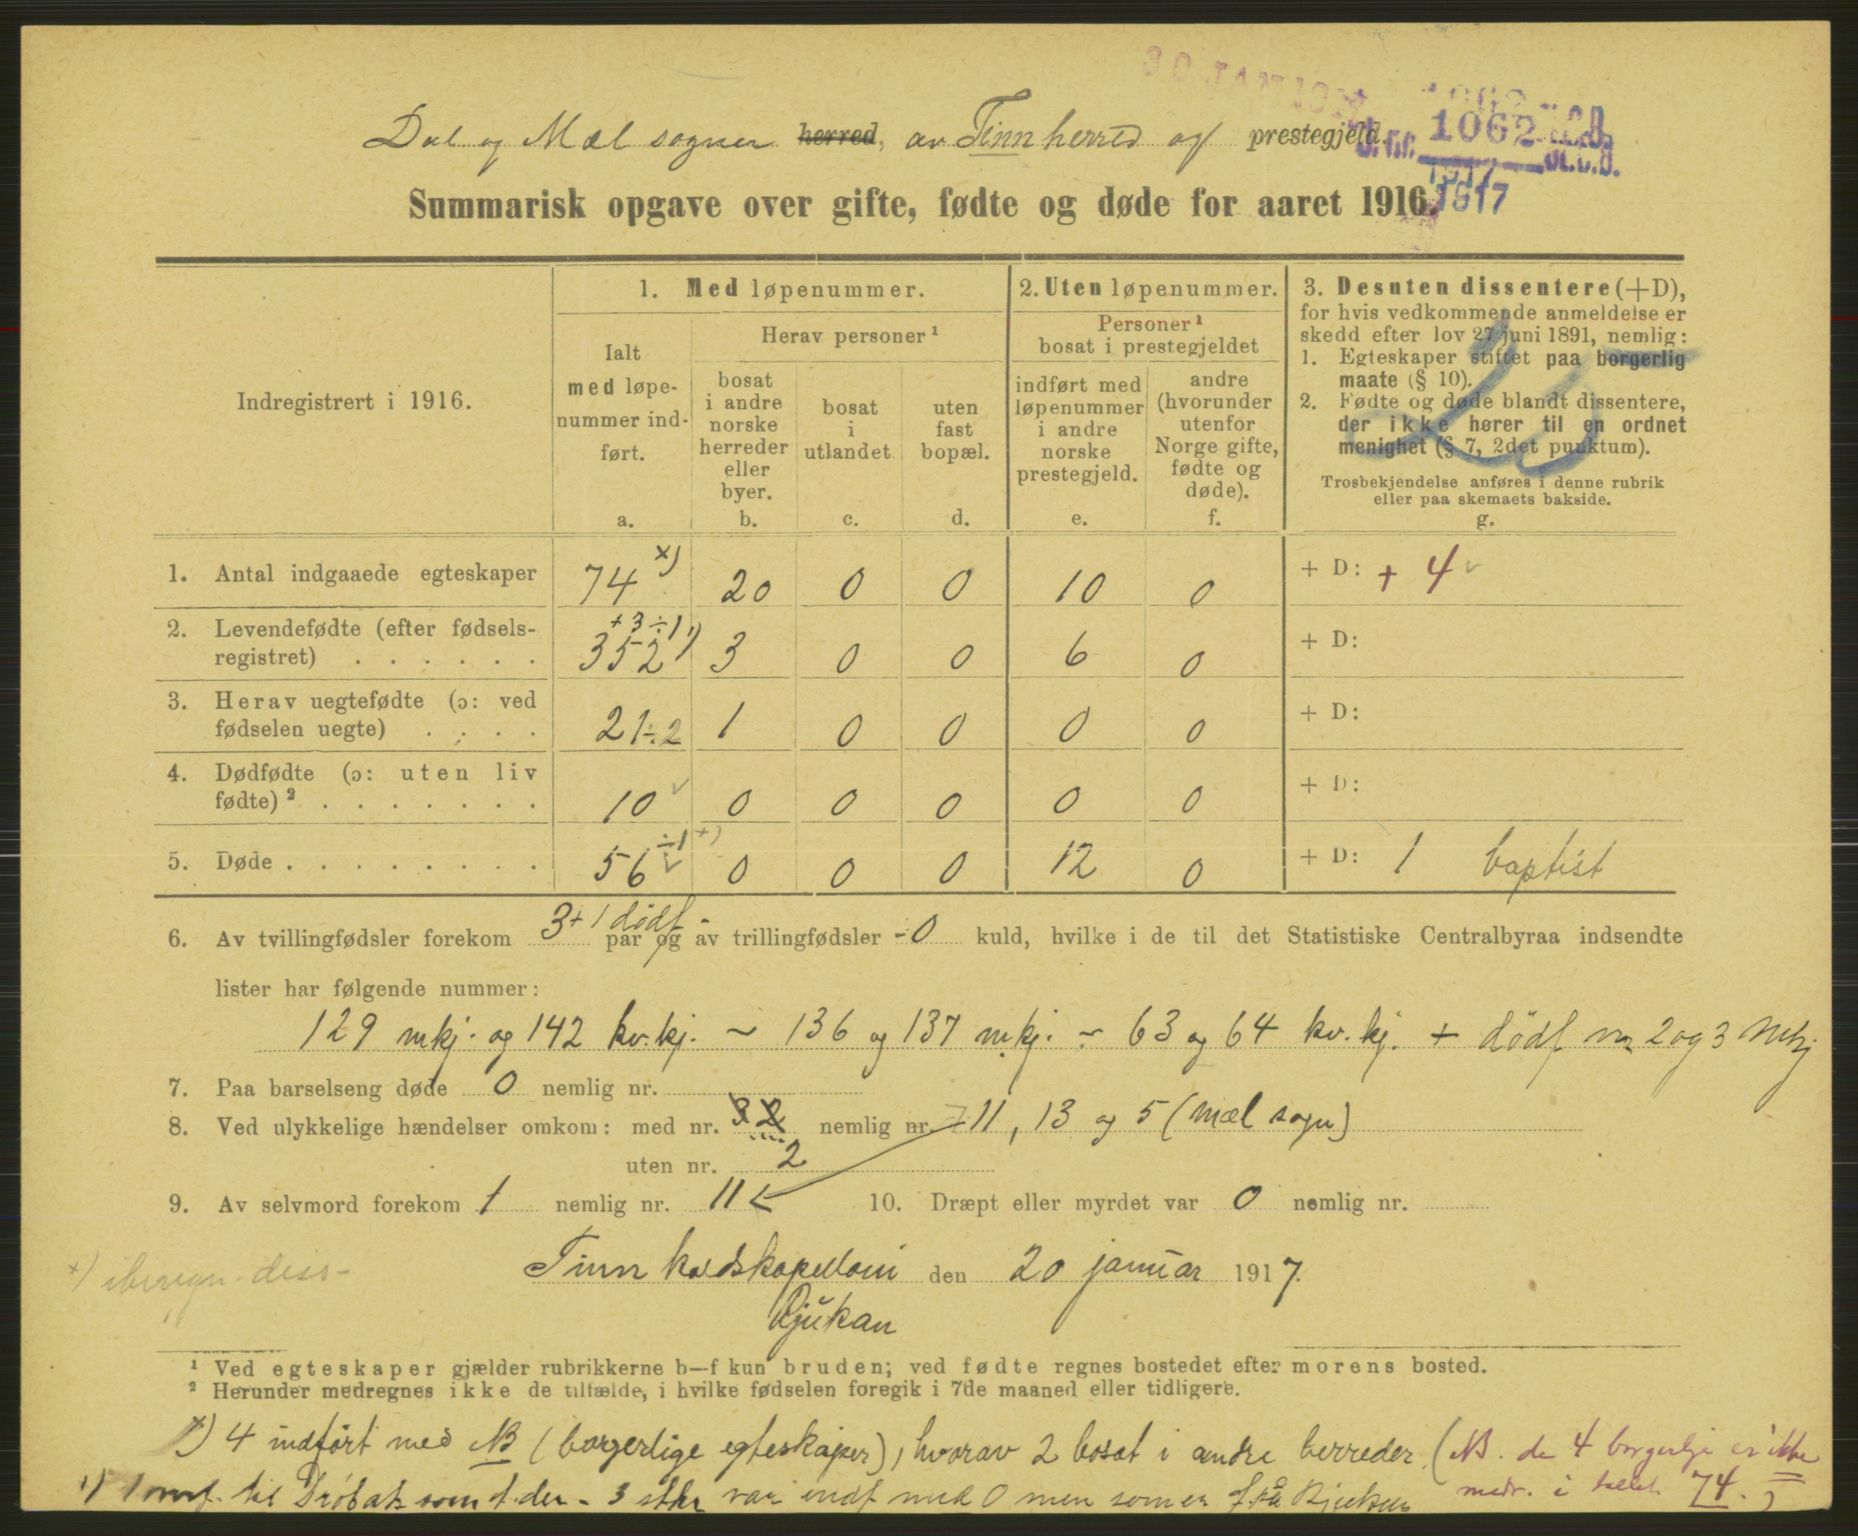 30 JAN 1917
Dal og Mæl sogner herred, av Tinn herred og prestegjeld.
J. nr. 1062 St. C. B.
1917
Summarisk opgave over gifte, fødte og døde for aaret 1916.
Indregistrert i 1916.
1. Med løpenummer.
Ialt med løpenummer indført.
a.
Herav personer ¹
bosat i andre norske herreder eller byer.
b.
bosat i utlandet
c.
uten fast bopæl.
d.
2. Uten løpenummer.
Personer ¹ bosat i prestegjeldet
indført med løpenummer i andre norske prestegjeld.
e.
andre (hvorunder utenfor Norge gifte, fødte og døde).
f.
3. Desuten dissentere (+D),
for hvis vedkommende anmeldelse er
skedd efter lov 27 juni 1891, nemlig:
1. Egteskaper stiftet paa borgerlig
maate (§ 10).
2. Fødte og døde blandt dissentere,
der ikke hører til en ordnet
menighet (§ 7, 2det punktum).
Trosbekjendelse anføres i denne rubrik
eller paa skemaets bakside.
g.
1. Antal indgaaede egteskaper 74 x) 20 0 0 10 0 + D: + 4
+3 ÷1 1)
2. Levendefødte (efter fødsels-
registret) . . . . . . 352 3 0 0 6 0 + D:
3. Herav uegtefødte (ɔ: ved
fødselen uegte) . . . . 21÷2 1 0 0 0 0 + D:
4. Dødfødte (ɔ: uten liv
fødte) ² . . . . . . . 10 0 0 0 0 0 + D:
÷1 +)
5. Døde . . . . . . . . 56 0 0 0 12 0 + D: 1 baptist
6. Av tvillingfødsler forekom 3 + 1 dødf. par og av trillingfødsler - 0 kuld, hvilke i de til det Statistiske Centralbyraa indsendte
lister har følgende nummer:
129 mkj. og 142 kv.kj. ~ 136 og 137 mkj. ~ 63 og 64 kv.kj. + dødf nr 2 og 3 mkj
7. Paa barselseng døde 0 nemlig nr.
8. Ved ulykkelige hændelser omkom: med nr. 3 2 nemlig nr. 11, 13 og 5 (Mæl sogn)
uten nr. 2
9. Av selvmord forekom 1 nemlig nr. 11 10. Dræpt eller myrdet var 0 nemlig nr.
x) iberegn. diss-
Tinn kaldskapellani den 20 januar 1917.
Rjukan
¹ Ved egteskaper gjælder rubrikkerne b—f kun bruden; ved fødte regnes bostedet efter morens bosted.
² Herunder medregnes ikke de tilfælde, i hvilke fødselen foregik i 7de maaned eller tidligere.
x) 4 indført med NB (borgerlige egteskaper), hvorav 2 bosat i andre herreder. (NB. de 4 borgerlige er ikke
medr. i tallet 74.)
1) 1 overf. til Drøbak som f. der - 3 stkr var indf med 0 men som er f. på Rjukan